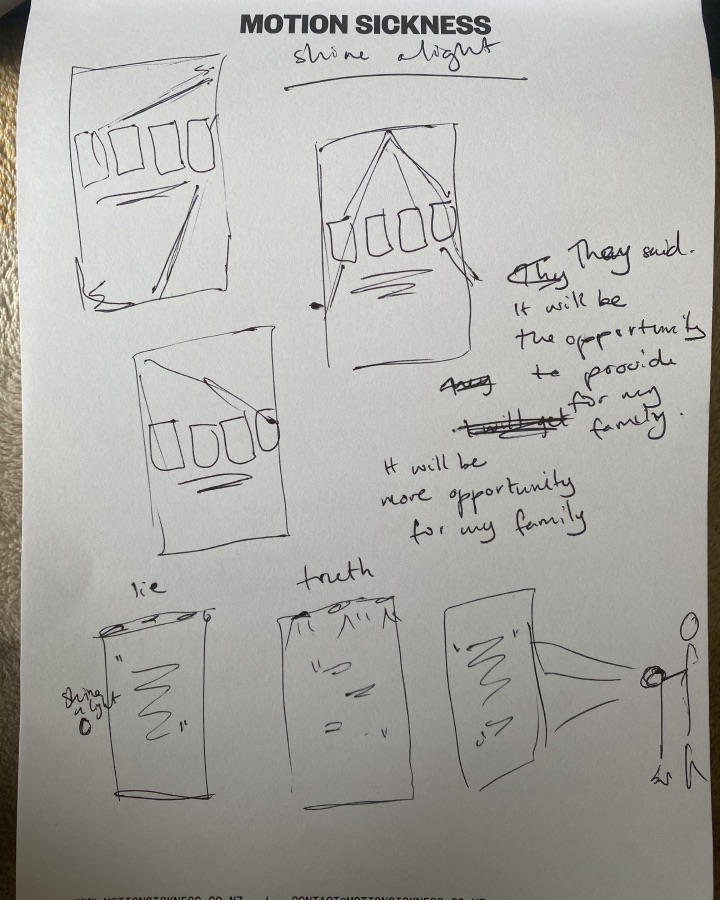 MOTION SICKNESS
shine a light
They said.
It will be
the opportunity
to provide
for my
family.
It will be
more opportunity
for my family
lie
truth
shine
a light
WWW.MOTIONSICKNESS.CO.NZ | CONTACT@MOTIONSICKNESS.CO.NZ